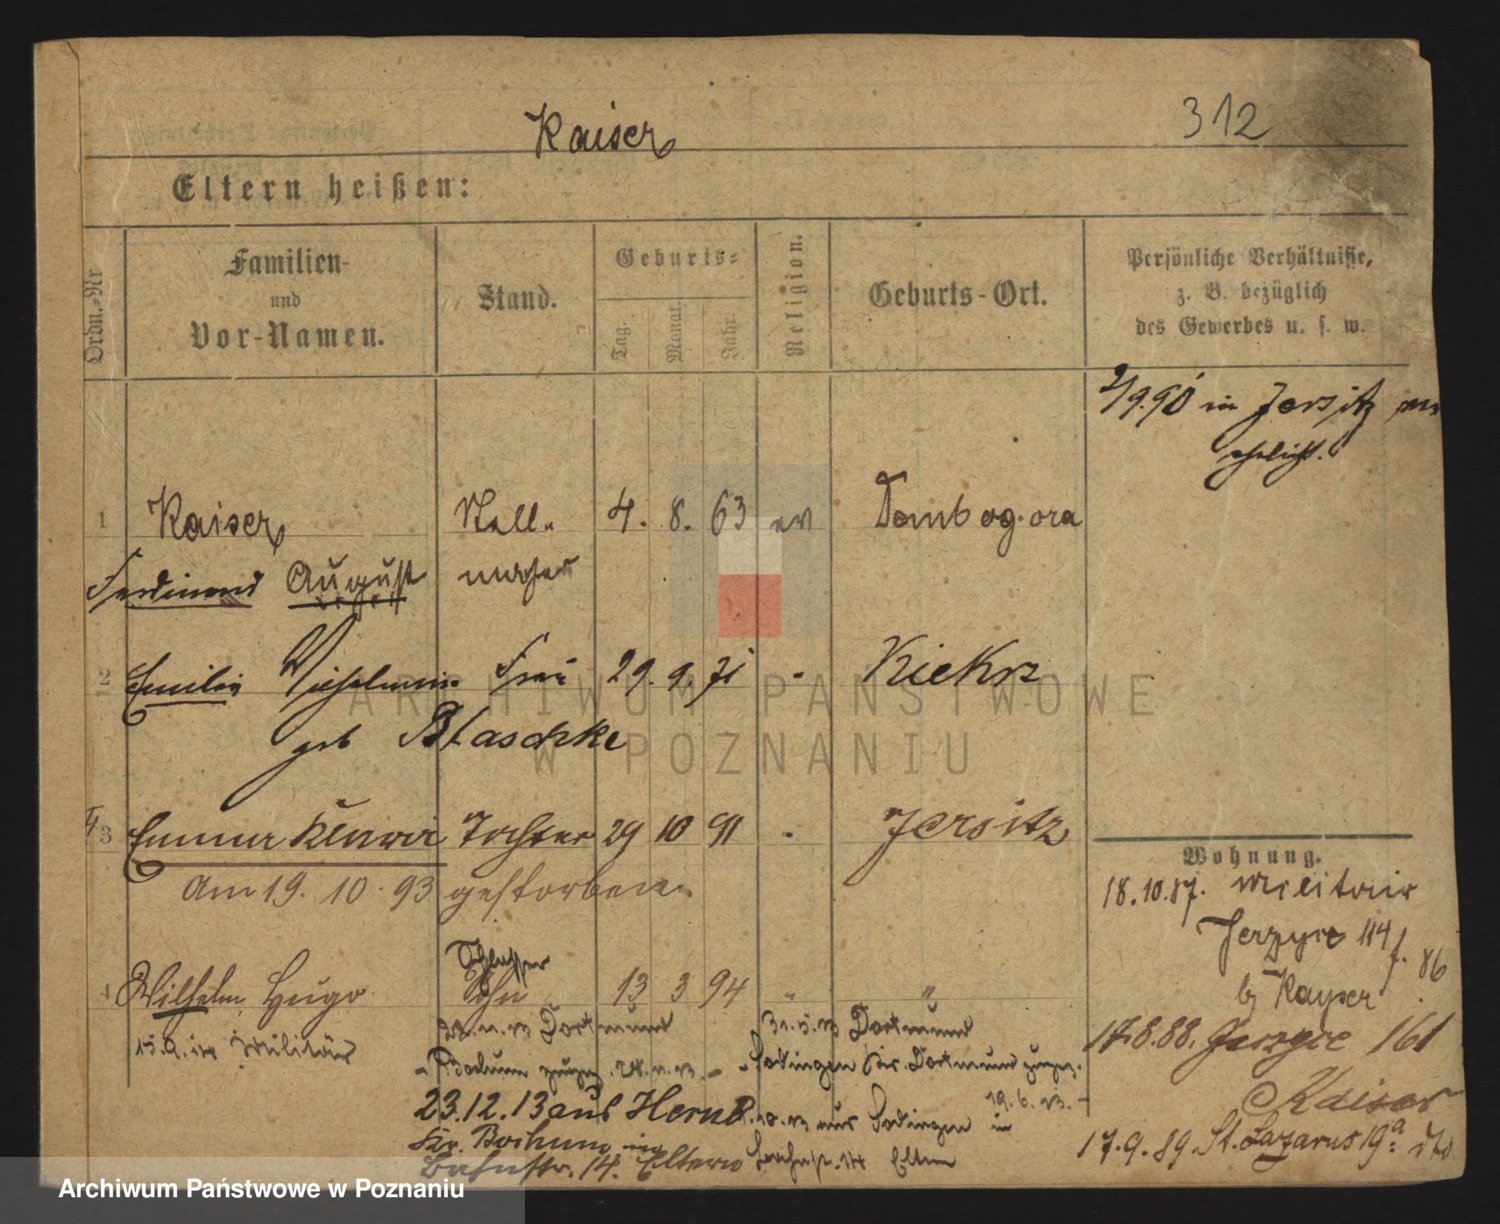 312
Kaiser
Eltern heißen:
Ordn.-Nr
Familien-
und
Vor-Namen.
Stand.
Geburts-
Tag.
Monat.
Jahr.
Religion.
Geburts-Ort.
Persönliche Verhältnisse,
z. B. bezüglich
des Gewerbes u. s. w.
2/9.90 in Jersitz ver
ehelicht.
1 Kaiser Stell- 4. 8. 63 ev Dombogora
Ferdinand August macher
2 Emilie Wilhelmine Frau 29. 9. 71 - Kiekrz
geb Blaschke
3 Emma Klara Tochter 29 10 91 - Jersitz
Am 19. 10. 93 gestorben.
Wohnung.
18.10.87. Militair
Jerzyce 114
b/ Kayser
4 Wilhelm Hugo Schlosser
Sohn 13 3 94 " "
Militär
Dortmund
31.5.13 Dortmund
17.8.88. Jerzyce 161
Bochum
Sodingen Kr. Dortmund
19.6.13.-
Kaiser
23.12.13 aus Herne
aus Sodingen in
Kr. Bochum in
17.9.89. St. Lazarus 19a. dto
Bahnstr. 14. Eltern
14 Eltern
ARCHIWUM PAŃSTWOWE
W POZNANIU
Archiwum Państwowe w Poznaniu